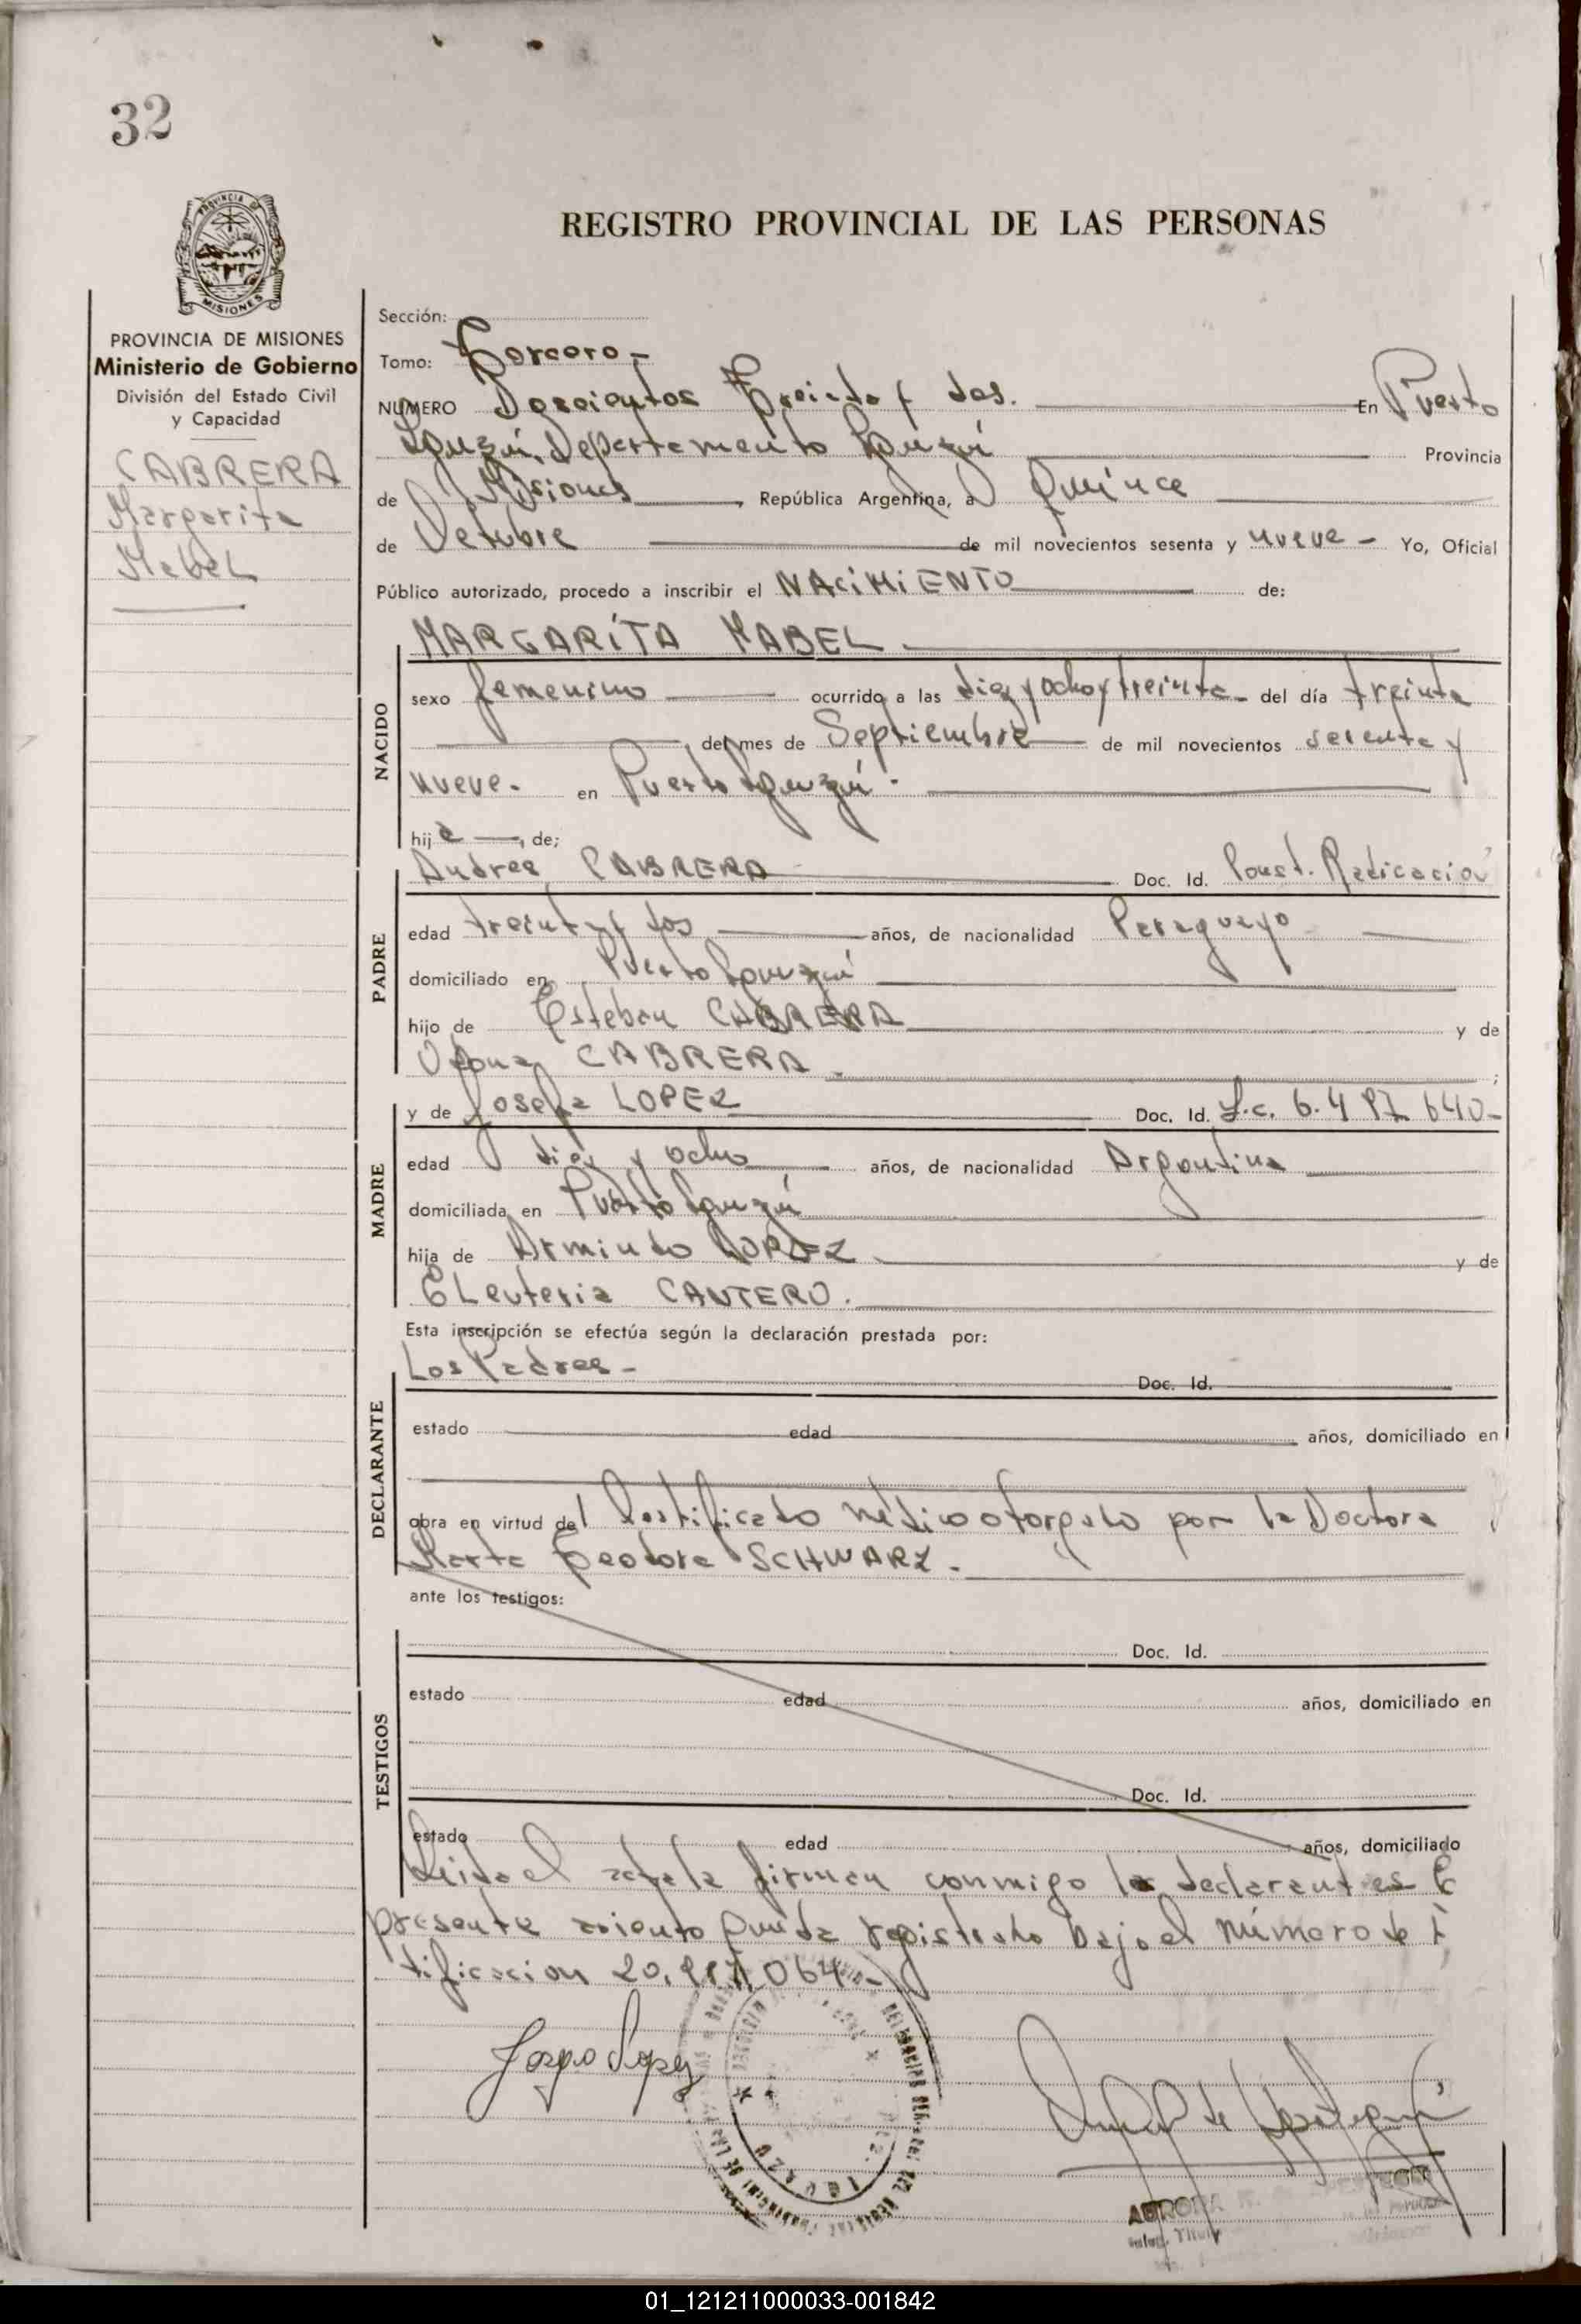 32
PROVINCIA DE
MISIONES
REGISTRO PROVINCIAL DE LAS PERSONAS
PROVINCIA DE MISIONES
Ministerio de Gobierno
División del Estado Civil
y Capacidad
CABRERA
Margarita
Mabel
Sección:
Tomo: Tercero -
NUMERO Doscientos Treinta y dos. En Puerto
Iguazú, Departamento Iguazú Provincia
de Misiones, República Argentina, a Quince
de Octubre de mil novecientos sesenta y nueve - Yo, Oficial
Público autorizado, procedo a inscribir el NACIMIENTO de:
MARGARITA MABEL
NACIDO
sexo femenino ocurrido a las diez y ocho y treinta - del día treinta
del mes de Septiembre de mil novecientos sesenta y
nueve. en Puerto Iguazú.
hija, de;
PADRE
Andres CABRERA Doc. Id. Const. Radicación
edad treinta y dos años, de nacionalidad Paraguayo
domiciliado en Puerto Iguazú
hijo de Esteban CABRERA y de
CABRERA ;
MADRE
y de Josefa LOPEZ Doc. Id. L.c. 6.4 640-
edad diez y ocho años, de nacionalidad Argentina
domiciliada en Puerto Iguazú
hija de Armindo LOPEZ y de
Eleuteria CANTERO.
Esta inscripción se efectúa según la declaración prestada por:
DECLARANTE
Los Padres - Doc. Id.
estado edad años, domiciliado en
obra en virtud del Certificado médico otorgado por la Doctora
Marta Teodora SCHWARZ.
ante los testigos:
TESTIGOS
Doc. Id.
estado edad años, domiciliado en
Doc. Id.
estado edad años, domiciliado
Leida el acta la firman conmigo los declarantes E
presente asiento queda registrado bajo el número de I
tificacion 20. 064 -
Lopez
IGUAZU
AURORA
01_121211000033-001842